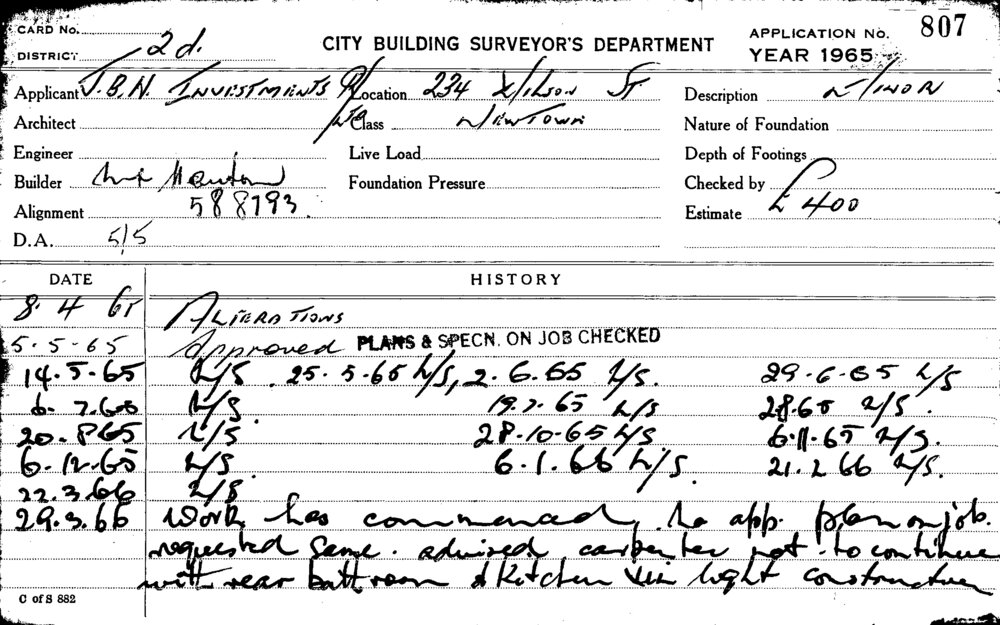 CARD No. 807
DISTRICT 2d. CITY BUILDING SURVEYOR'S DEPARTMENT APPLICATION No.
YEAR 1965
Applicant J.B.N. INVESTMENTS P/L Location 234 Wilson ST Description MINOR
Architect Class NEWTOWN Nature of Foundation
Engineer Live Load Depth of Footings
Builder Foundation Pressure Checked by
Alignment 588793. Estimate £ 400
D.A. 5/5
DATE HISTORY
8. 4 65 ALTERATIONS
5-5-65 Approved PLANS & SPECN. ON JOB CHECKED
14.5.65 N/S. 25.5.65 N/S, 2.6.65 N/S. 29.6.65 N/S
6.7.65 N/S 19.7.65 N/S 2.8.65 N/S.
20.8.65 N/S 28.10.65 N/S 6.11.65 N/S.
6.12.65 N/S. 6.1.66 N/S. 21.2 66 N/S.
22.3.66 N/S
29.3.66 Work has commenced, No app. plan on job.
requested same. advised carpenter not to continue
with rear bathroom & Kitchen light construction
C of S 882